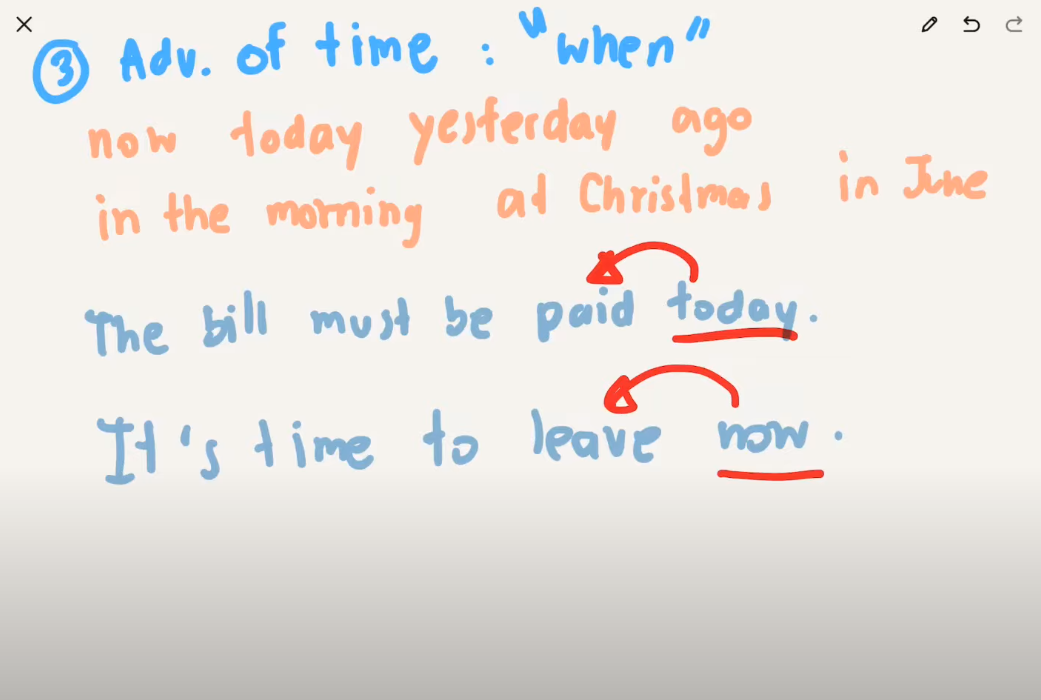 ③ Adv. of time : "when"
now today yesterday ago
in the morning at Christmas in June
The bill must be paid today.
It's time to leave now.